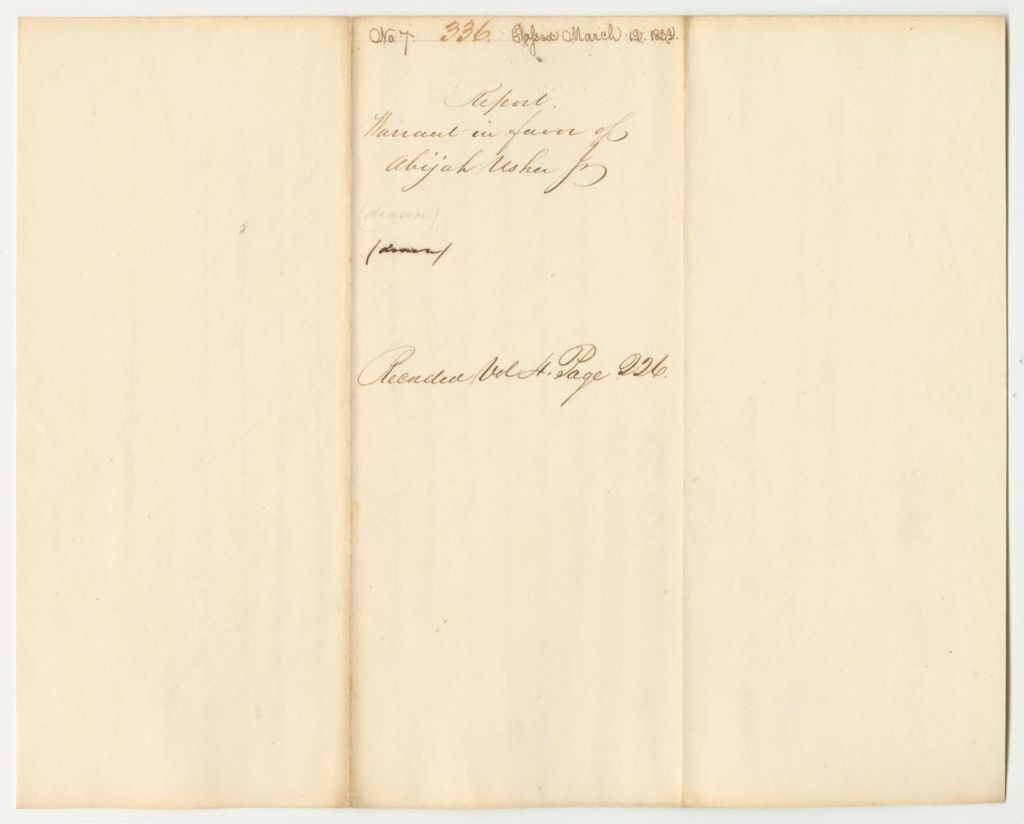 No 7. 336. Passed March 12. 1832.
Report.
Warrant in favor of
Abijah Usher Jr
(drawn)
(drawn)
Recorded Vol 4. Page 226.